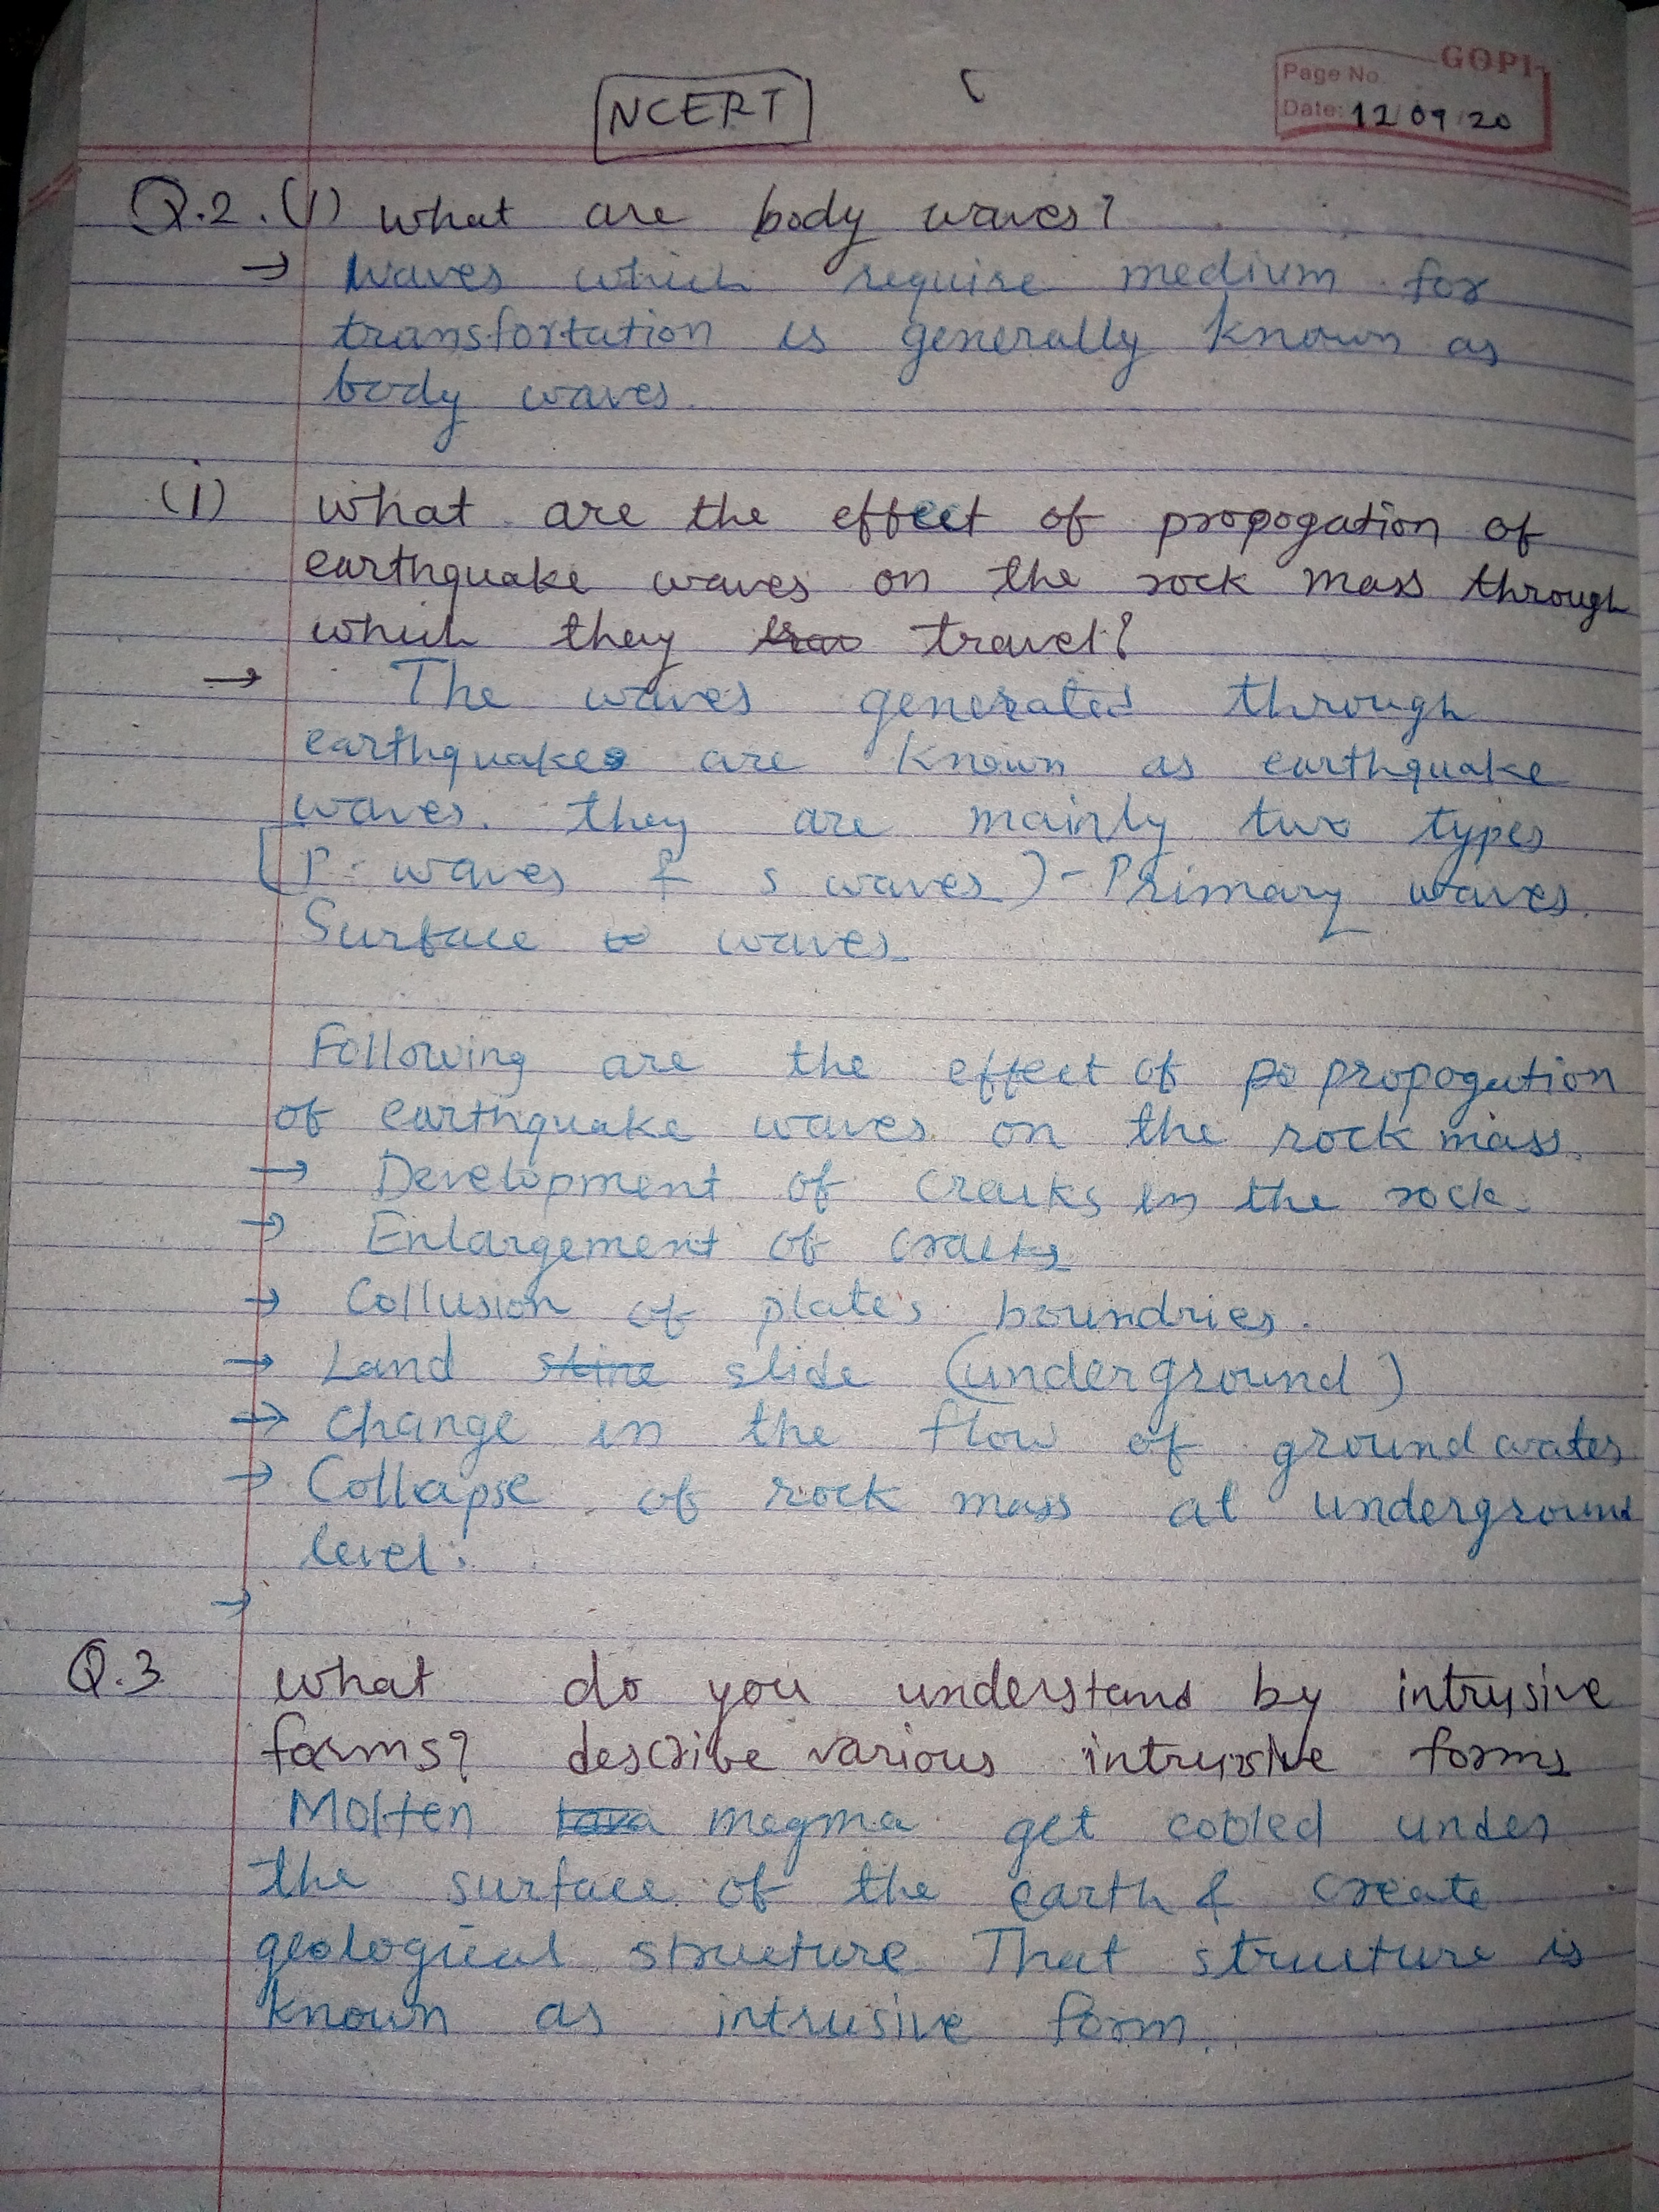 GOPI
Page No.
Date: 12/09/20
NCERT
Q.2. (1) what are body waves?
→ Waves which require medium for
transfortation is generally known as
body waves.
(i) what are the effect of propogation of
earthquake waves on the rock mass through
which they travel?
→ The waves generated through
earthquakes are known as earthquake
waves. they are mainly two types
[P. waves & s waves) - Primary waves.
Surface waves.
Following are the effect of po propogation
of earthquake waves on the rock mass.
→ Development of cracks in the rock.
→ Enlargement of cracks
→ Collusion of plate's boundries.
→ Land slide (underground)
→ change in the flow of ground water
→ Collapse of rock mass at underground
level.
→
Q.3 what do you understand by intrusive
forms? describe various intrusive forms
Molten lava magma get cooled under
the surface of the earth & create
geological structure. That structure is
known as intrusive form.